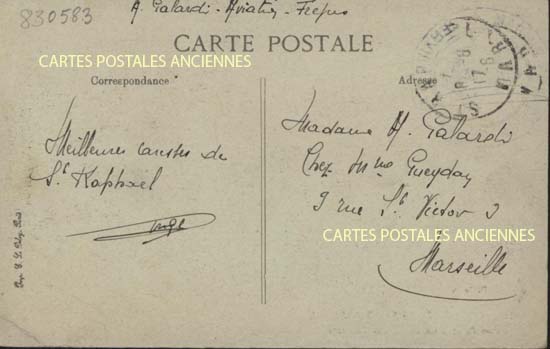 830583
A. Galardi - Aviation - Frejus
CARTE POSTALE
CARTES POSTALES ANCIENNES
Correspondance
Adresse
Meilleures caresses de
St Raphael
Madame A. Galardi
Chez Mme Gueyday
9 rue St Victor 9
CARTES POSTALES ANCIENNES
Marseille